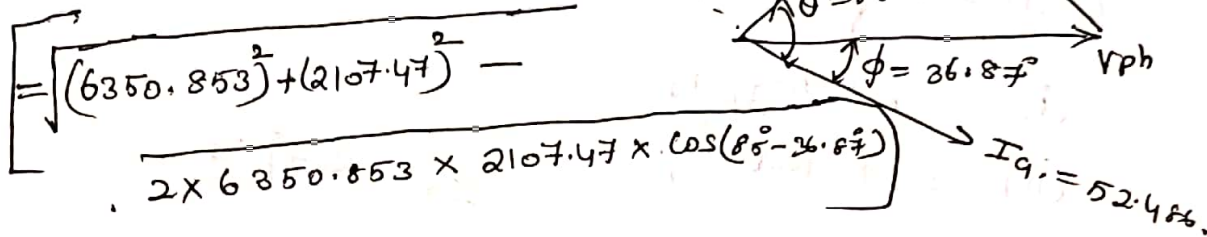 = √(6350.853)² + (2107.47)² −
2 x 6350.853 x 2107.47 x cos(8 °- 36.87°)
θ
ϕ = 36.87°
Vph
Ia. = 52.486.